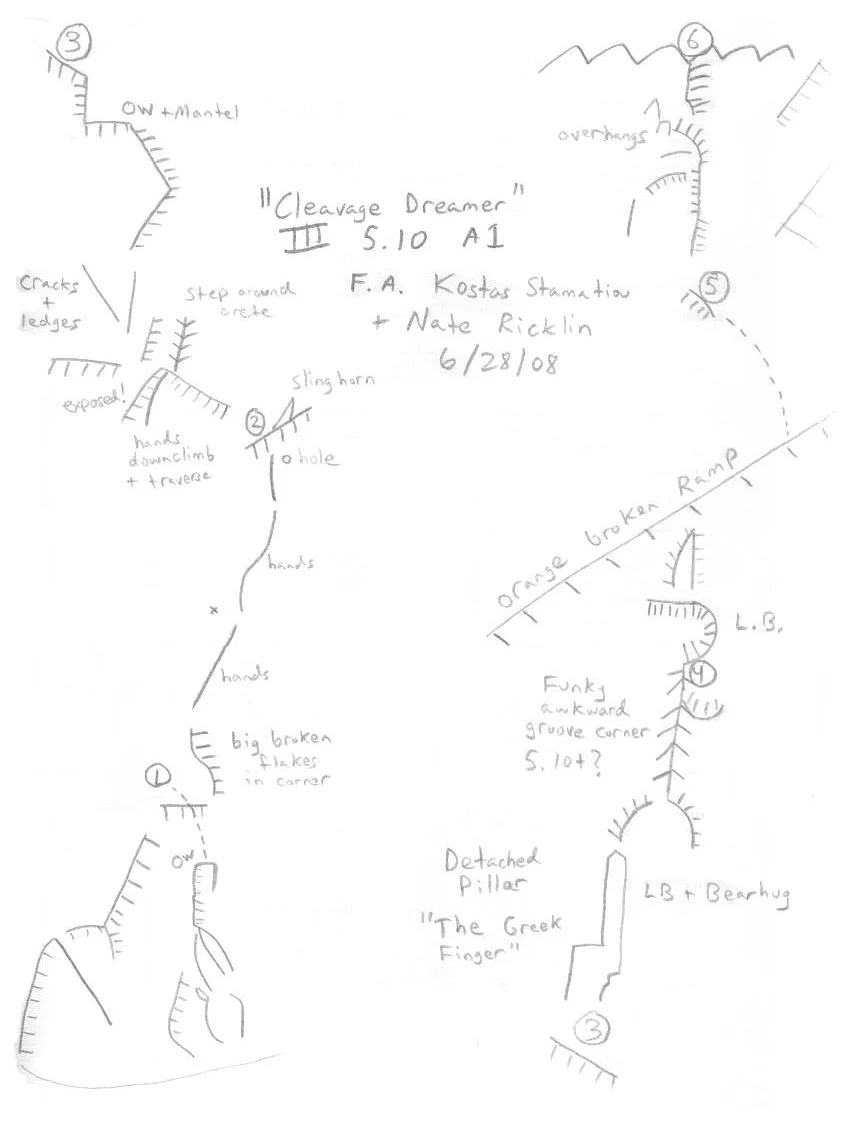 "Cleavage Dreamer"
III 5.10 A1
F.A. Kostas Stamatiou
+ Nate Ricklin
6/28/08
3
OW + Mantel
Cracks
+
ledges
Step around
arete
exposed!
hands
downclimb
+ traverse
2
sling horn
o hole
hands
x
hands
big broken
flakes
in corner
1
OW
6
overhangs
5
orange broken Ramp
L.B.
4
Funky
awkward
groove corner
5.10+?
Detached
Pillar
"The Greek
Finger"
LB + Bearhug
3